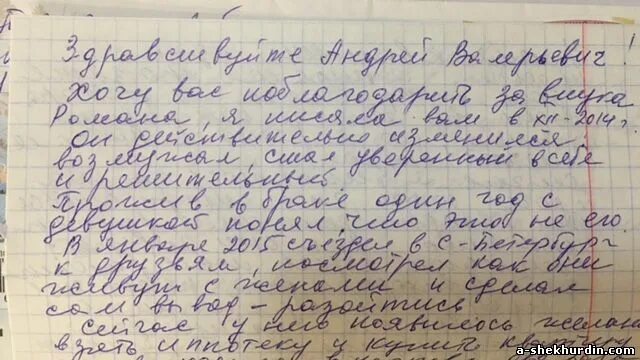 Здравствуйте Андрей Валерьевич!
Хочу вас поблагодарить за внука
Романа, я писала вам в XII-2014г.
он действительно изменился,
возмужал, стал уверенный в себе
и решительный.
Прожив в браке один год с
девушкой понял, что это не его.
В январе 2015 съездил в С-Петербург
к друзьям, посмотрел как они
живут с женами и сделал
сам вывод - разойтись
Сейчас у него появилось желан
взять иппотеку и купить
a-shekhurdin.com